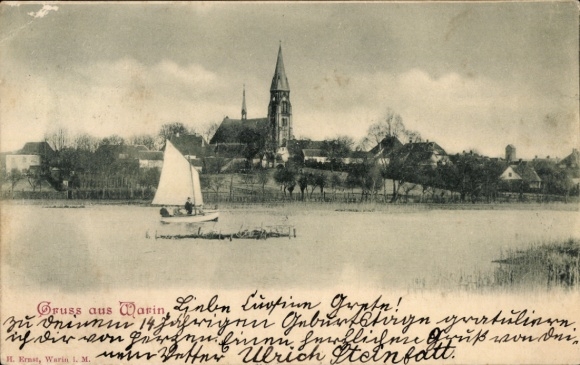 Gruss aus Warin
Liebe Cousine Grete!
zu deinem 14 jährigen Geburtstage gratuliere
ich dir von herzen. Einen herzlichen Gruß von dei-
nem Vetter Ulrich Steinfatt.
H. Ernst, Warin i. M.